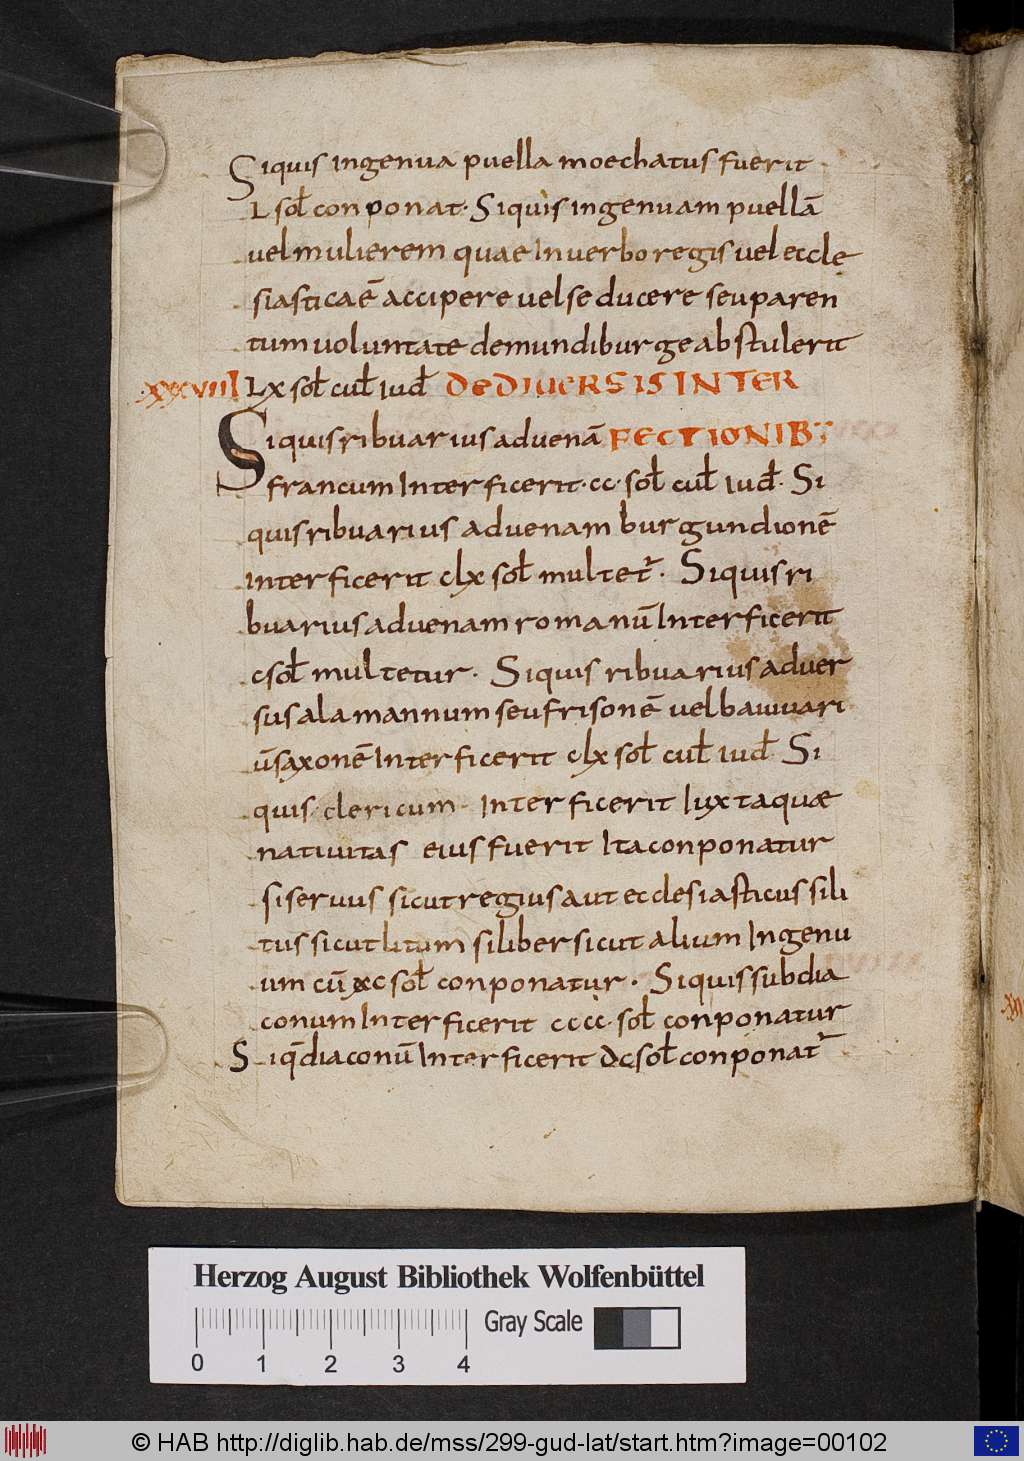 Siquis ingenua puella moechatus fuerit
L sol̄ conponat· Siquis ingenuam puellā
vel mulierem quae In uerbo regis uel eccle
siasticaē accipere uel seducere seu paren
tum uoluntate de mundiburge abstulerit
·XXXVIII LX sol̄ cul̄ iud̄ DE DIUERSIS INTER
Siquis ribuarius aduenā FECTIONIB;
francum Interficerit·cc· sol̄ cul̄ iud̄· Si
quis ribuarius aduenam burgundionē
interficerit clx sol̄ multet̄· Siquis ri
buarius aduenam romanū Interficerit
c sol̄ multetur· Siquis ribuarius aduer
sus alamannum seu frisonē uel baiuuari
ū saxonē Interficerit clx sol̄ cul̄ iud̄ Si
quis clericum· Interficerit Iuxta quæ
natiuitas eius fuerit Ita conponatur
si seruus sicut regius aut ecclesiasticus si li
tus sicut litum si liber sicut alium Ingenu
um cū xc sol̄ conponatur· Siquis subdia
conum Interficerit cccc· sol̄ conponatur
Siq̄ diaconū Interficerit dc sol̄ conponat̄
Herzog August Bibliothek Wolfenbüttel
Gray Scale
0 1 2 3 4
© HAB http://diglib.hab.de/mss/299-gud-lat/start.htm?image=00102